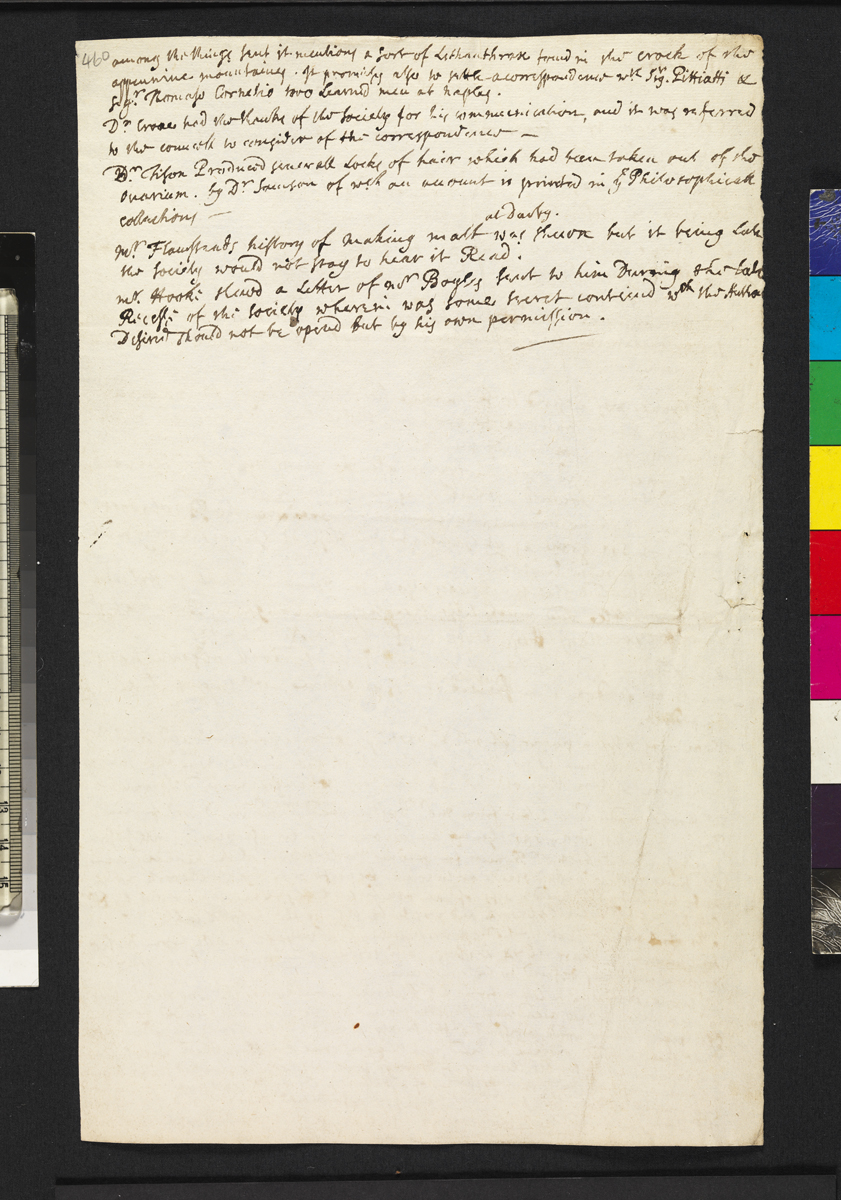 460 among the things sent it mentions a sort of Lithanthrax found in the crack of the
appennine mountaines. It promises also to settle a correspondence wth Sigr. Pittiatti &
Sigr. Thomaso Cornelio two Learned men at naples.
Dr. Croone had the thanks of the Society for his communication, and it was referred
to the councell to consider of the correspondence —
Dr. Tison Produced severall Locks of hair which had been taken out of the
ovarium. by Dr. Samson of wch an account is printed in ye Philosophicall
collections —
at Darby.
mr. Flamsteads history of making malt was shewn but it being Late
the Society would not stay to hear it Read.
mr. Hooke shewd a Letter of mr Boyles sent to him During the late
Recesse of the Society wherein was some secret conteined wch the Author
Desired should not be opend but by his own permission.
13
14
15